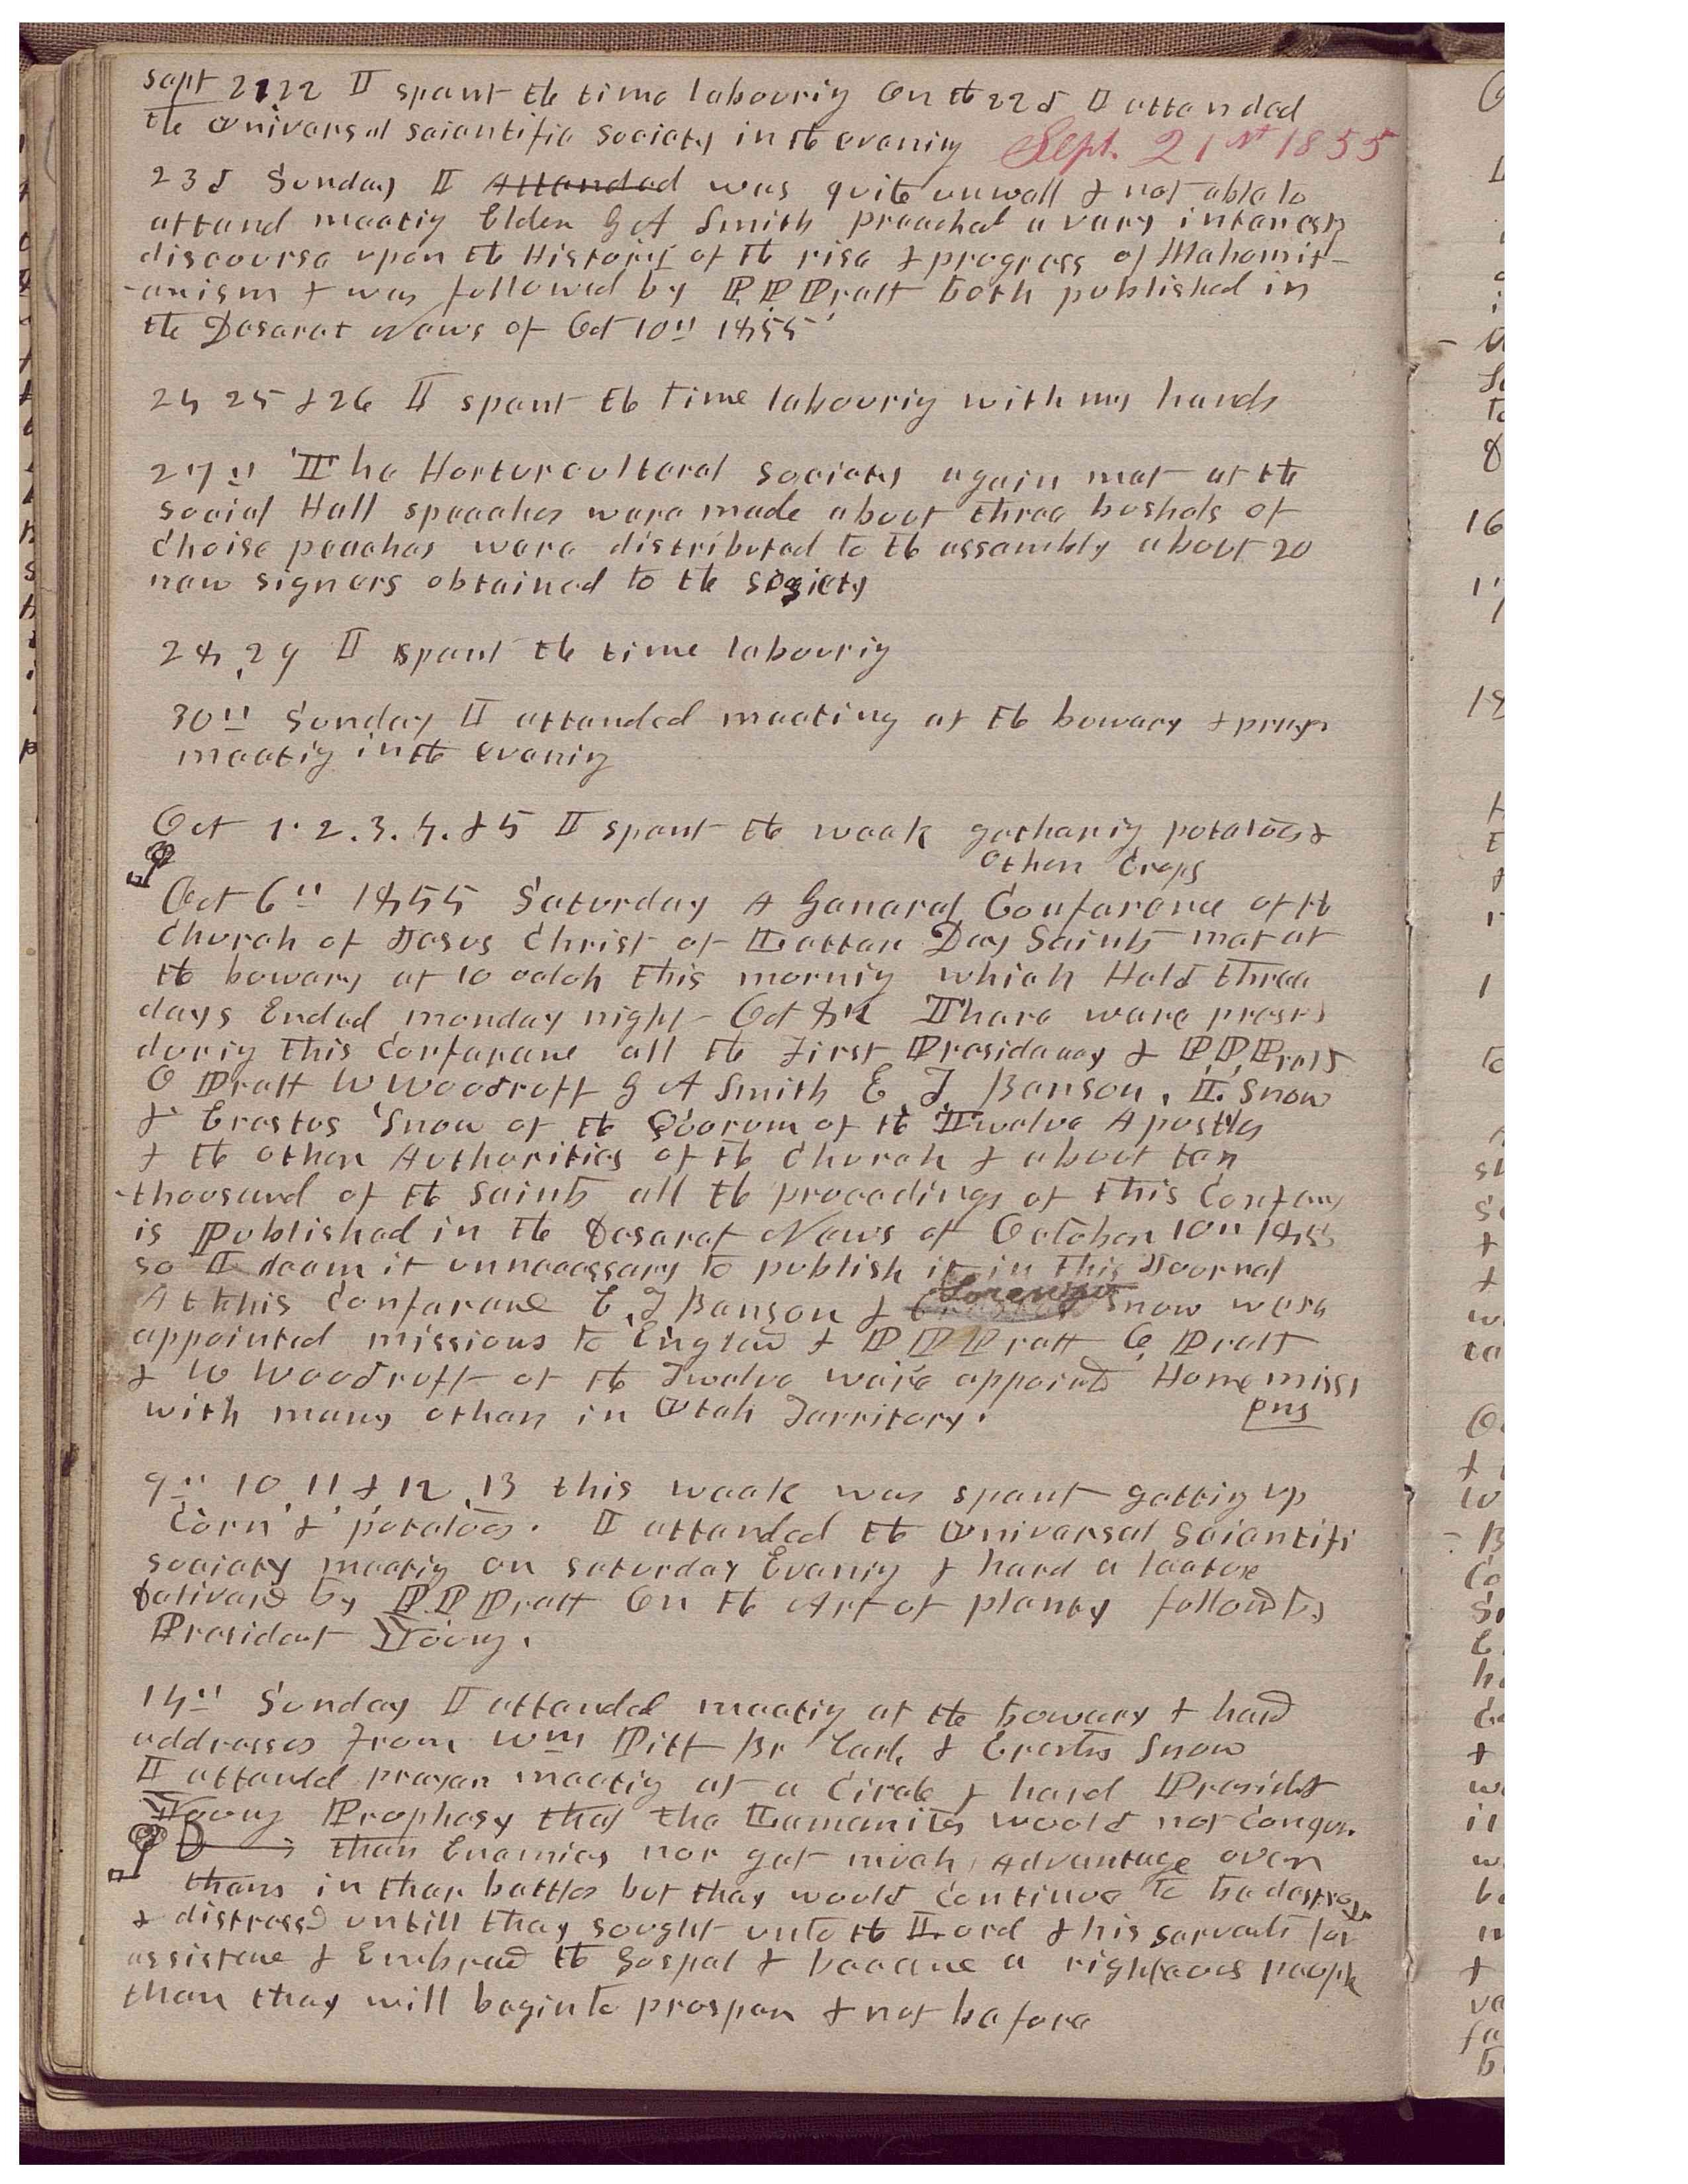 Sept 21 22 I spent the time labouring On the 22d I attended
the Universal scientific Society in the evening Sept. 21st 1855
23d Sunday I Attended was quite unwell & not able to
attend meeting Elder G A Smith preached a very interestg
discourse upon the History of the rise & progress of Mahomit-
-anism & was followed by P. P. Pratt both published in
the Deseret News of Oct 10th 1855
24 25 & 26 I spent the time labouring with my hands
27th The Horturcultural society again met at the
social Hall speeches were made about three bushels of
Choise peaches were distributed to the assembly about 20
new signers obtained to the society
28, 29 I spent the time labouring
30th Sunday I attended meeting at the bowery & prayer
meeting in the evening
Oct 1. 2. 3. 4. & 5 I spent the week gathering potatoes &
other Crops
Oct 6th 1855 Saturday A General Conference of the
Church of Jesus Christ of Latter Day Saints met at
the bowery at 10 oclok this morning which Held three
days Ended monday night Oct 8th There were presnt
during this Conferance all the First Presidency & P. P. Pratt
O Pratt W Woodruff G A Smith E. T. Benson, L. Snow
& Erastus Snow of the Quorum of the Twelve Apostles
& the other Authorities of the Church & about ten
-thousand of the Saints all the proceedings of this Confern
is Published in the Deseret News of October 10th 1855
so I deem it unnecessary to publish it in this Journal
At this Conferance E. T Benson & Lorenzo Snow were
appointed missions to England & P P Pratt O Pratt
& W Woodruff of the Twelve were appointed Home missi
with many others in Utah Territory. ons
9th 10, 11 & 12, 13 this week was spent getting up
Corn & potatoes. I attended the Universal Scientifi
society meeting on saturday Evening & herd a lecture
deliverd by P. P. Pratt On the Art of planty followd by
President Young.
14th Sunday I attended meeting at the bowery & herd
addresses from Wm Pitt Br Carl & Erastus Snow
I attended prayer meeting at a Circle & herd President
Young Prophesy that the Lamanites would not Conquer
their Enemies nor get much Advantage over
them in ther battles but they would Continue to be destroy
& distressed untill they sought unto the Lord & his servants for
assistance & Embraced the Gospel & became a righteous people
then they will begin to prosper & not before